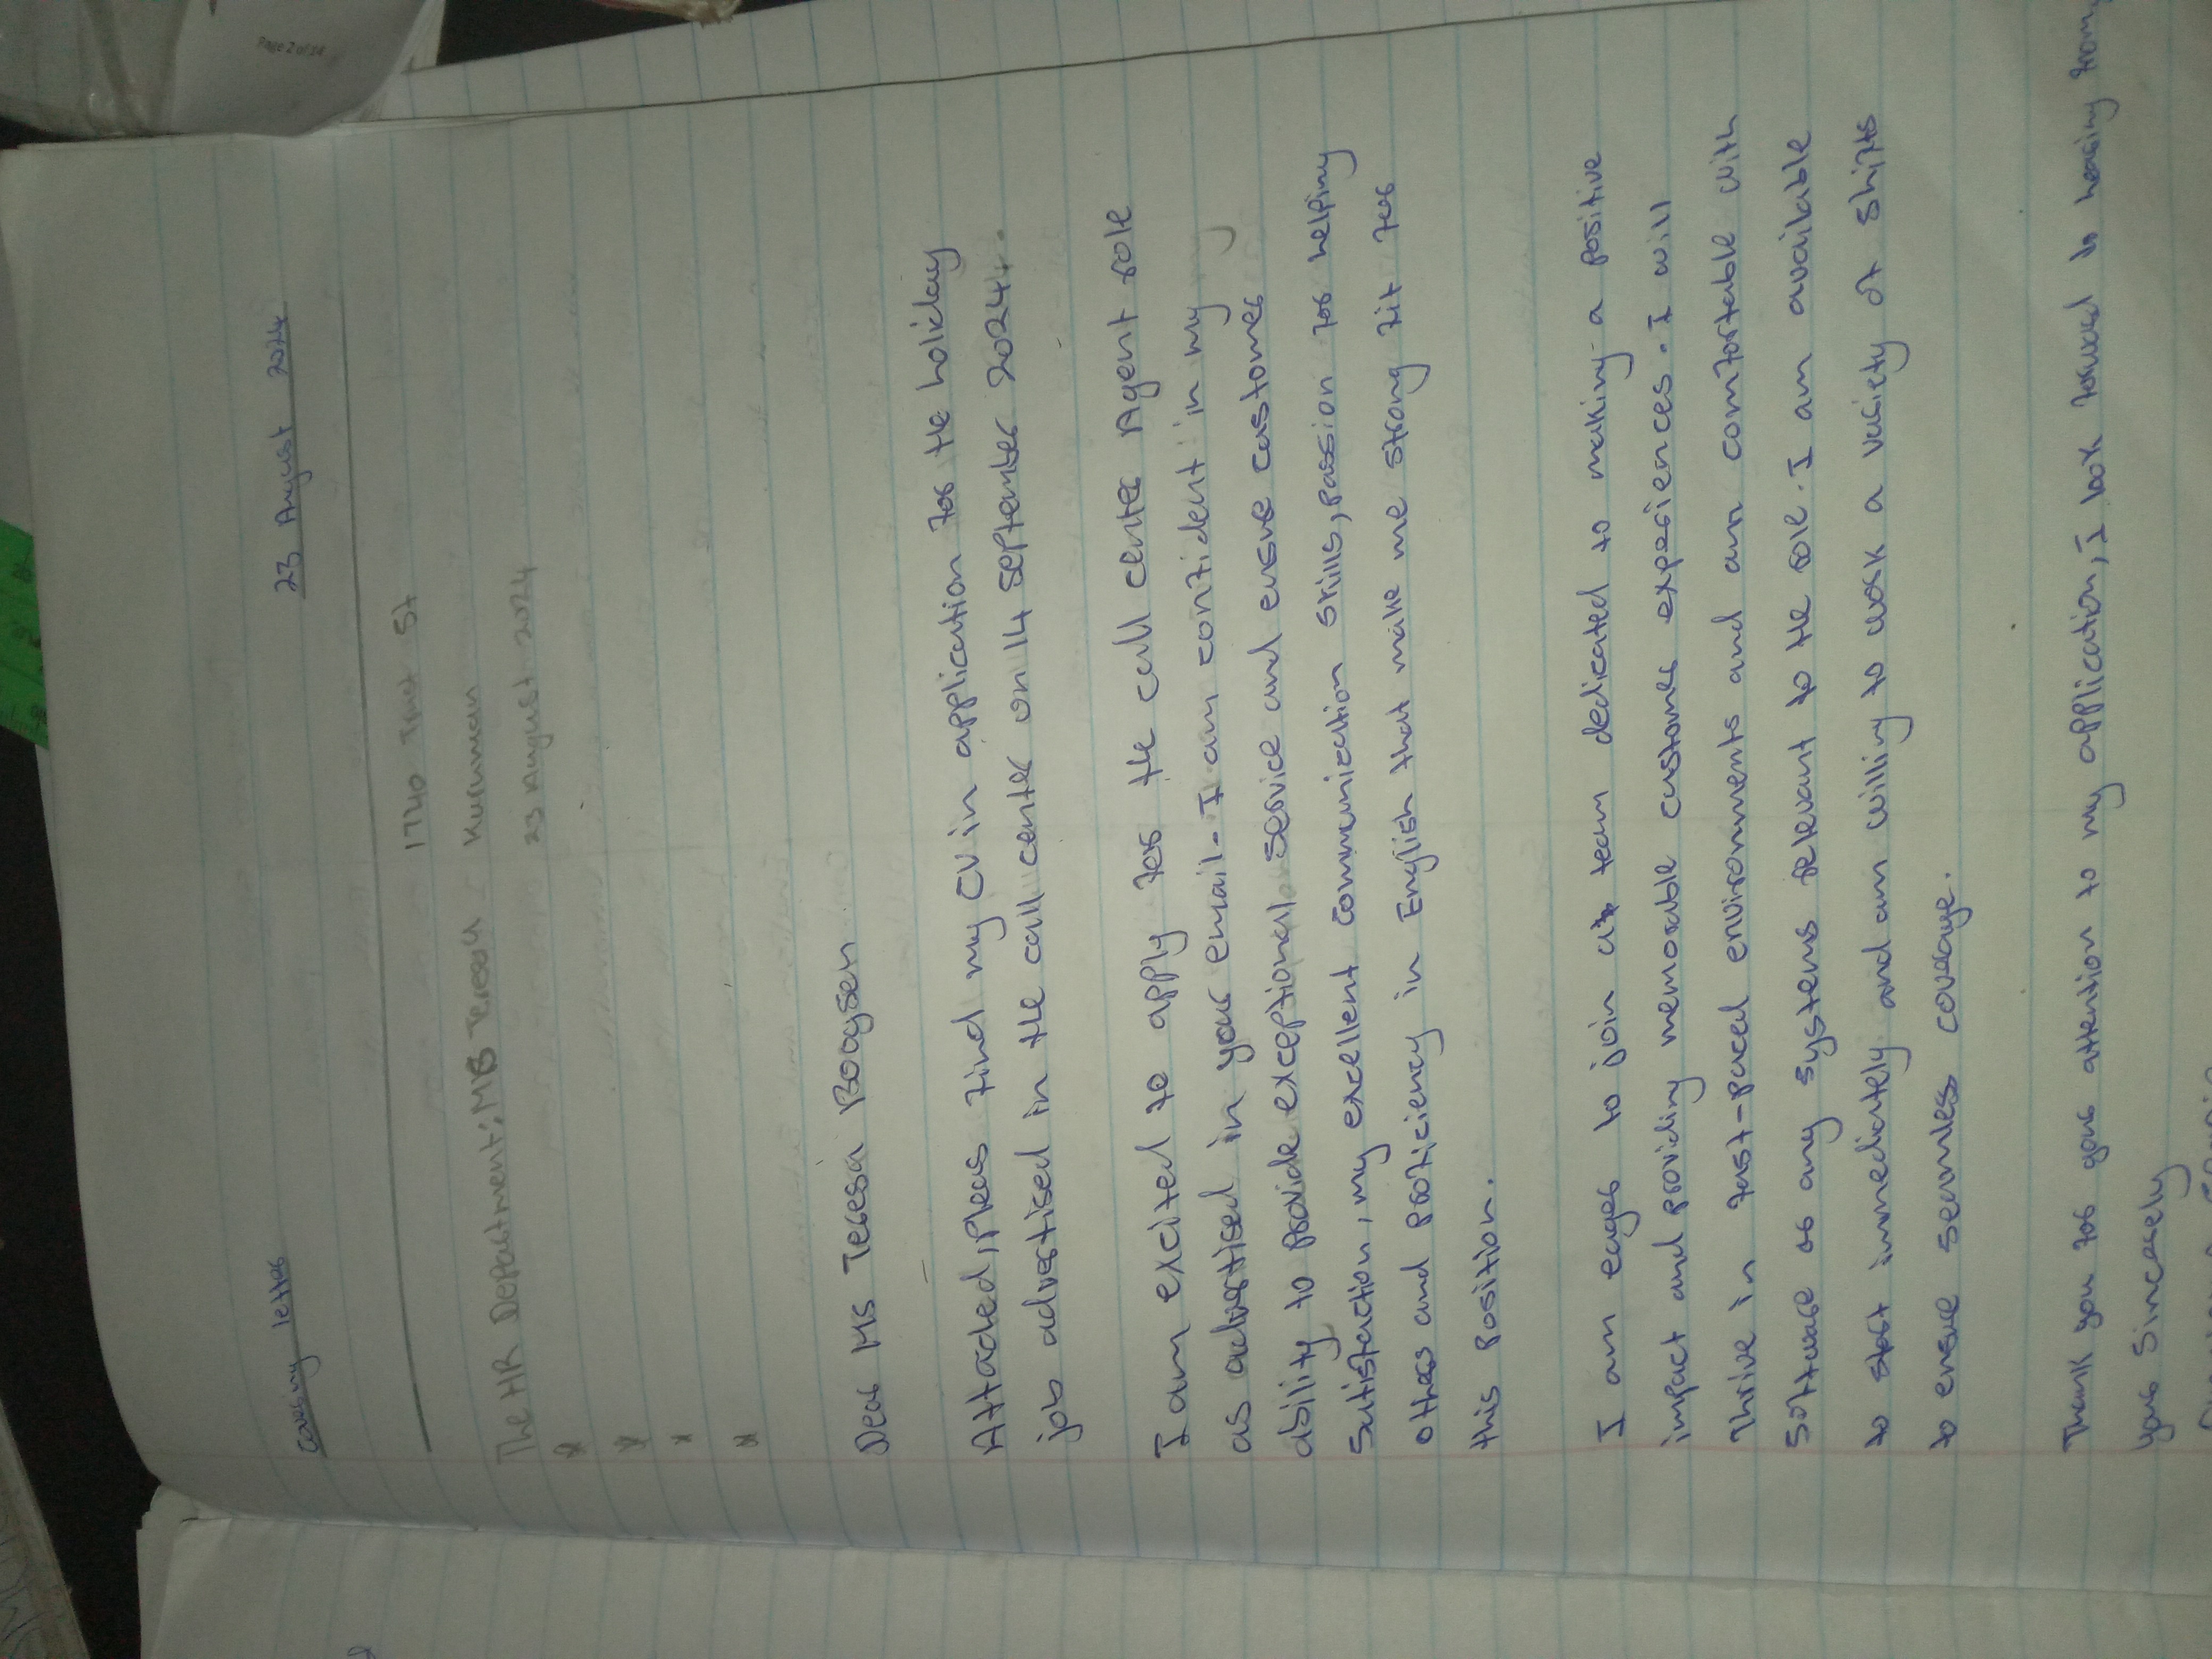 covering letter 23 August 2024
1740 Trust St
The HR Department: MS Teresa Kuruman
23 August 2024
Dear Ms Teresa Boogsen
Attached, Pleas find my CV in application for the holiday
job advertised in the call center on 14 September 2024.
I am excited to apply for the call center Agent role
as advertised in your email. I am confident in my
ability to provide exceptional service and ensure customer
Satisfaction, my excellent communication skills, passion for helping
others and proficiency in English that make me strong fit for
this Position.
I am eager to join a team dedicated to making a positive
impact and providing memorable customer experiences. I will
Thrive in fast-paced environments and am comfortable with
Software or any systems relevant to the role. I am available
to start immediately and am willing to work a variety of shifts
to ensure seamless coverage.
Thank you for your attention to my application, I look forward to hearing from
your Sincerely